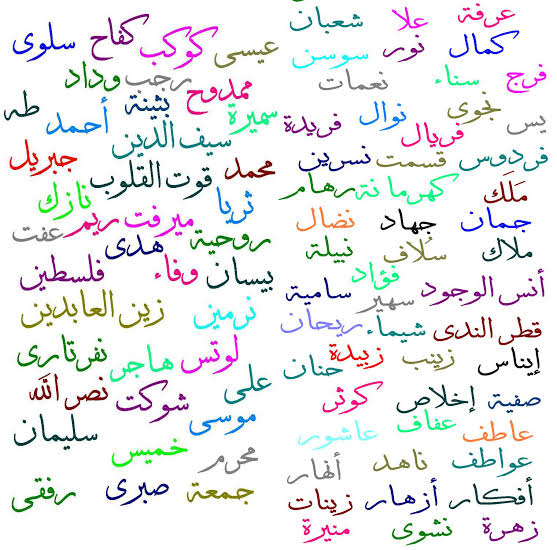 عرفة علا شعبان
كمال نور سوسن
فرج سناء نعمات
يس نجوى نوال فريال فريدة
فردوس قسمت نسرين
مَلَك كهرمانة رهام
جمان جهاد نضال
ملاك سُلاف نبيلة
أنس الوجود فؤاد سهير سامية
قطر الندى شيماء ريحان
إيناس زينب زبيدة حنان
صفية إخلاص كوثر
عاطف عفاف عاشور
عواطف ناهد أنهار
أفكار أزهار زينات
زهرة نشوى منيرة
عيسى كوكب كفاح سلوى
ممدوح رجب وداد
سميرة بثينة أحمد طه
سيف الدين
محمد قوت القلوب جبريل
ثريا ميرفت ريم نازك
روحية هدى عفت
بيسان وفاء فلسطين
نرمين زين العابدين
لوتس هاجر نفرتارى
على شوكت نصر الله
موسى سليمان
محرم خميس
جمعة صبرى رفقى